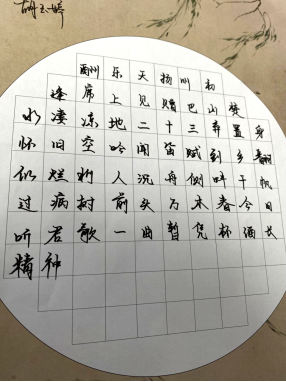 胡玉婷
酬州乐天扬州初
逢席上见赠巴山楚
水凄凉地二十三弃置身
怀旧空吟闻笛赋到乡翻
似烂柯人沉舟侧畔千帆
过病树前头万木春今日
听君歌一曲暂凭杯酒长
精神